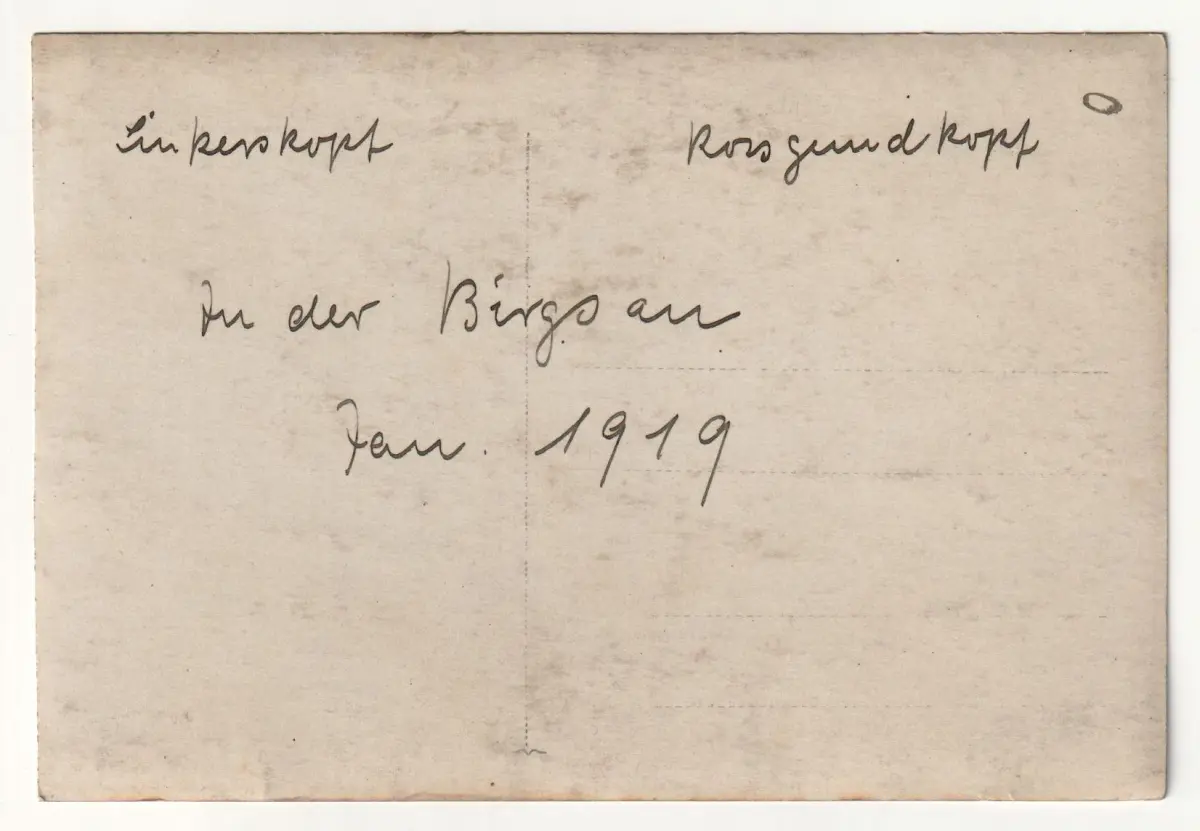 Linkerskopf Rossgundkopf
In der Birgsau
Jan. 1919